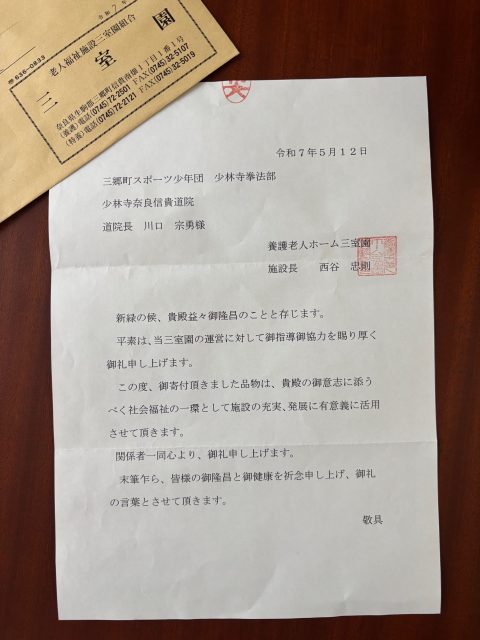 令和７年
〒636-0833
老人福祉施設三室園組合
三室園
奈良県生駒郡三郷町信貴南畑１丁目１番１号
(養護)電話(0745)72-2501 FAX(0745)32-5107
(特養)電話(0745)72-2121 FAX(0745)32-5019
令和７年５月１２日
三郷町スポーツ少年団　少林寺拳法部
少林寺奈良信貴道院
道院長　川口　宗勇様
養護老人ホーム三室園
施設長　西谷　忠則
新緑の候、貴殿益々御隆昌のことと存じます。
平素は、当三室園の運営に対して御指導御協力を賜り厚く
御礼申し上げます。
この度、御寄付頂きました品物は、貴殿の御意志に添う
べく社会福祉の一環として施設の充実、発展に有意義に活用
させて頂きます。
関係者一同心より、御礼申し上げます。
末筆乍ら、皆様の御隆昌と御健康を祈念申し上げ、御礼
の言葉とさせて頂きます。
敬具